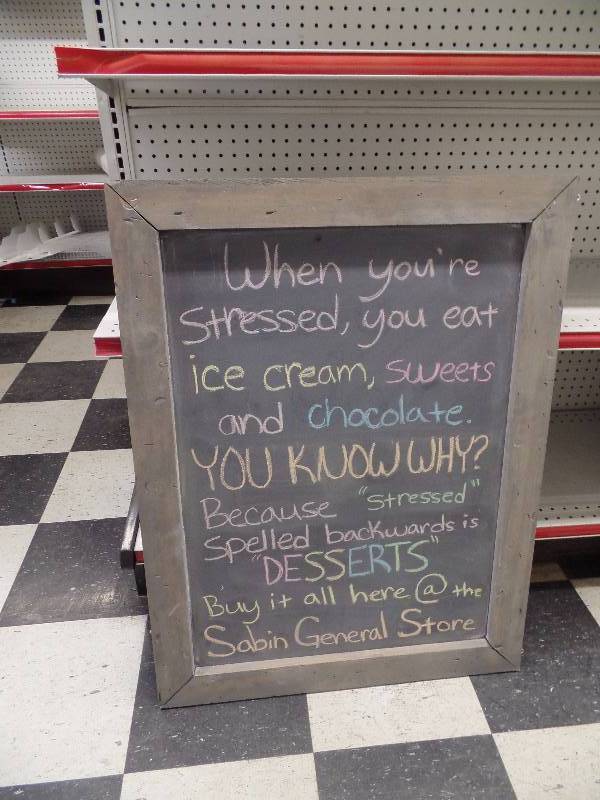 When you're
stressed, you eat
ice cream, sweets
and chocolate.
YOU KNOW WHY?
Because "stressed"
spelled backwards is
"DESSERTS"
Buy it all here @ the
Sabin General Store